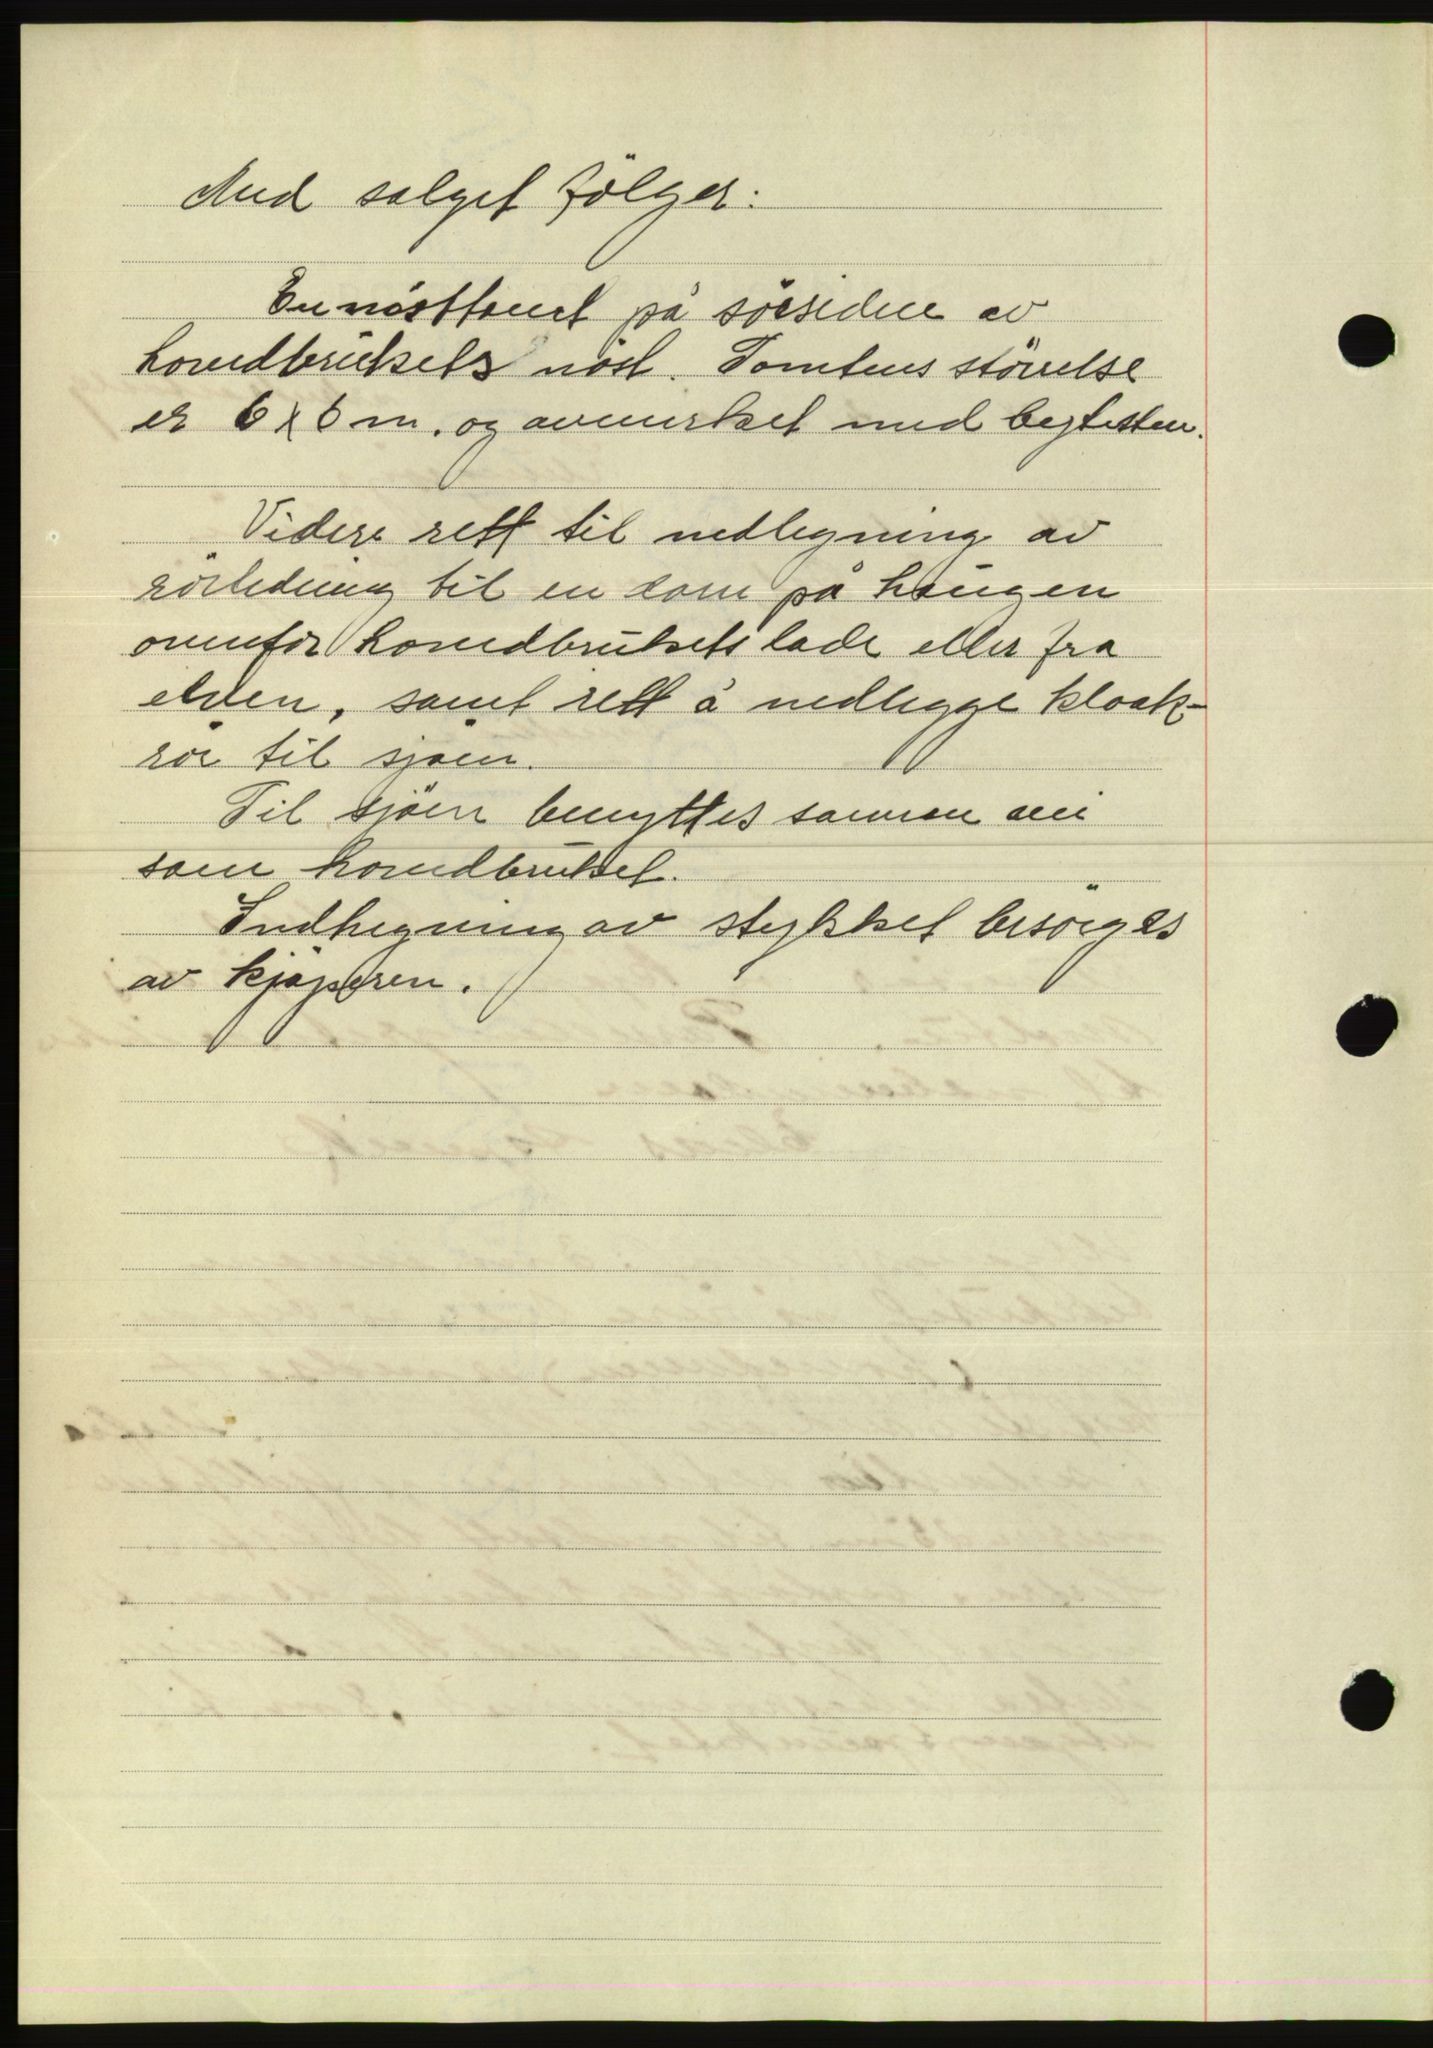 Med salget følger:
En nøsttomt på sørsiden av
hovedbrukets nøst. Tomtens størrelse
er 6 x 6 m. og avmerket med
Videre rett til nedlegning av
rørledning til en dam på haugen
ovenfor hovedbrukets lade eller fra
elven, samt rett å nedlegge kloak-
rør til sjøen.
Til sjøen benyttes samme vei
som hovedbruket.
Indhegning av stykket besørges
av kjøperen.